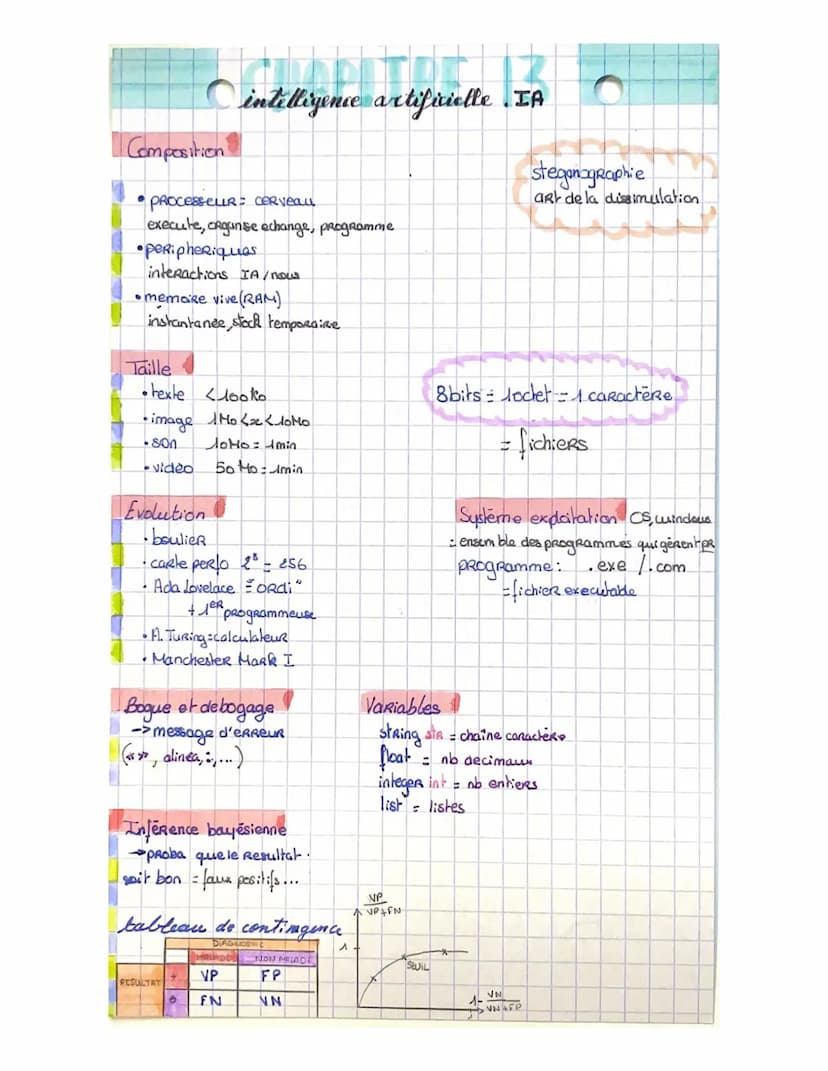 CHAPITRE 13
intelligence artificielle . IA
Composition
steganographie
ART de la dissimulation
• PROCESSEUR = CERVEAU
execute, organise echange, programme
• peripheriques
interactions IA / nous
• memoire vive (RAM)
instantanée, stock temporaire
Taille
• texte < 100 ko
• image 1 Mo < x < 10 Mo
• son 10 Mo = 1 min
• video 50 Mo = 1 min
8 bits = 1 octet = 1 caractère
= fichiers
Evolution
• boulier
• carte perfo 2⁸ = 256
• Ada Lovelace = "ordi"
+ 1er programmeuse
• A. Turing = calculateur
• Manchester Mark I
Système exploitation OS, windows
= ensemble des programmes qui gèrent PR
programme : .exe / .com
= fichier executable
Bogue et debogage
-> message d'erreur
(« », alinéa, :, ...)
Variables
string str = chaîne caractère
float = nb decimaux
integer int = nb entiers
list = listes
Inférence bayésienne
→ proba que le resultat
soit bon = faux positifs...
tableau de contingence
DIAGNOSTIC
MALADE NON MALADE
RESULTAT + VP FP
⊖ FN VN
VP
VP + FN
1
SEUIL
1 - VN
VN + FP
1